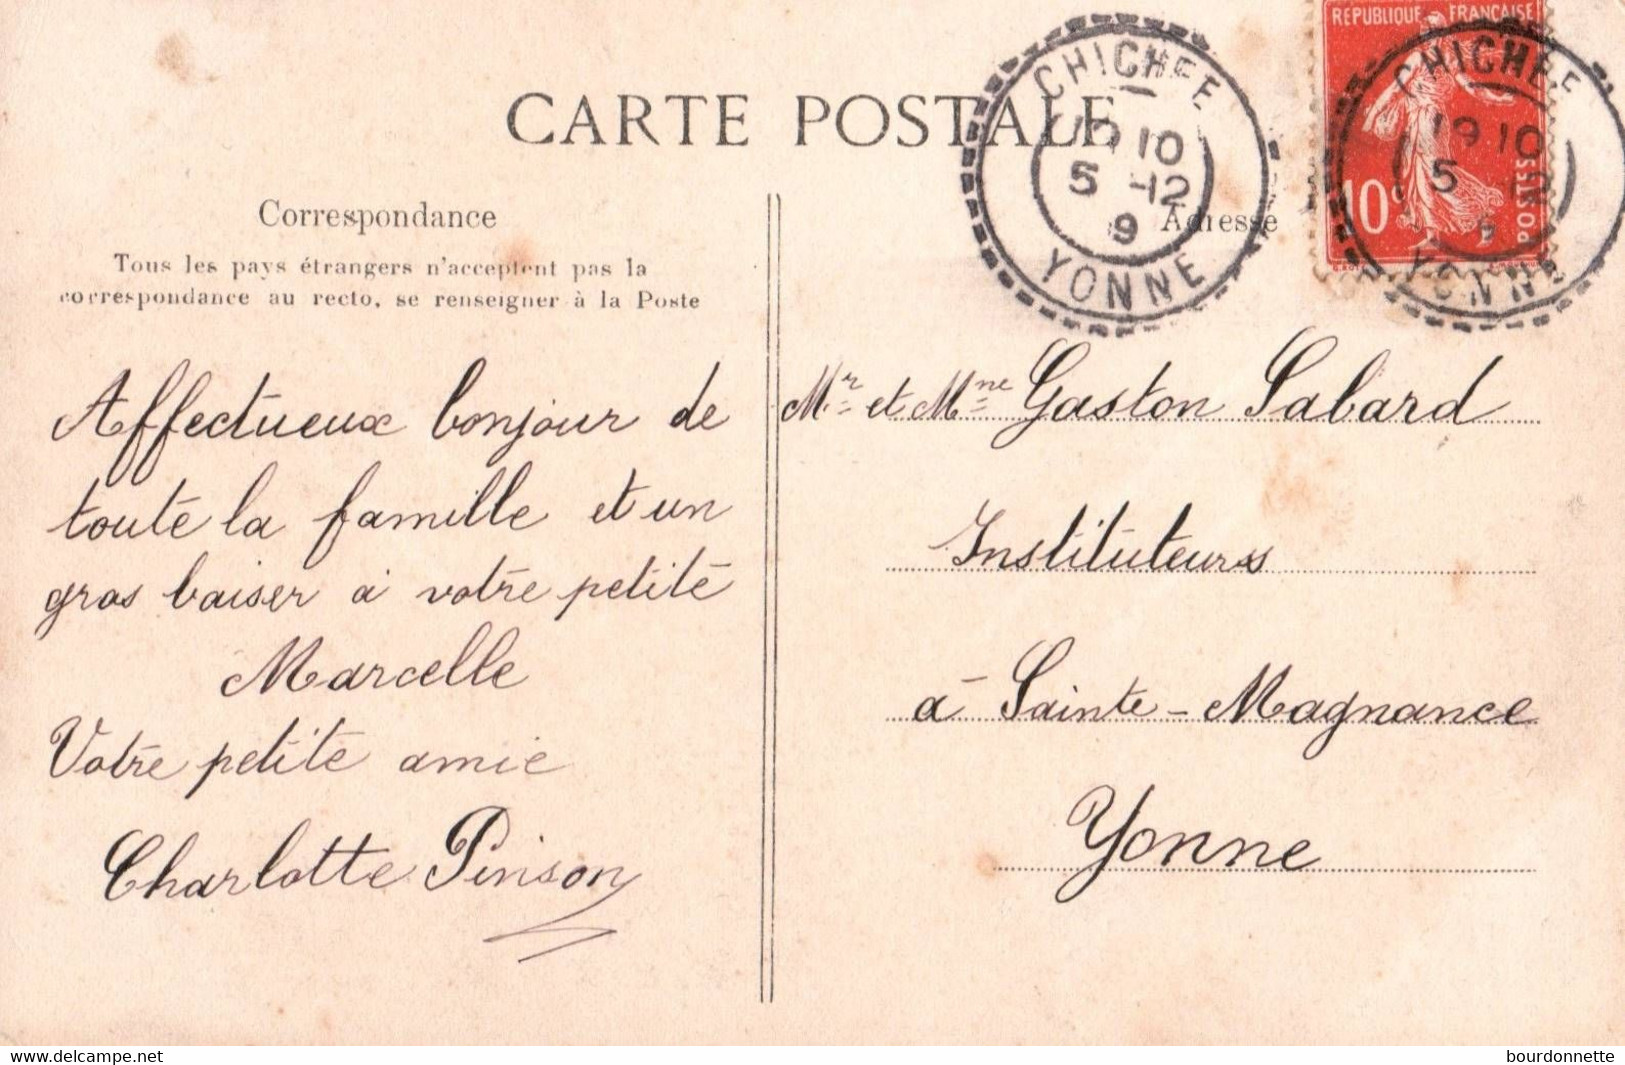 CARTE POSTALE
REPUBLIQUE FRANÇAISE
10c
POSTES
CHICHEE
19 10
5 -12
9
YONNE
CHICHEE
19 10
5
YONNE
Correspondance
Tous les pays étrangers n'acceptent pas la
correspondance au recto, se renseigner à la Poste
Adresse
Affectueux bonjour de
toute la famille et un
gros baiser à votre petite
Marcelle
Votre petite amie
Charlotte Pinson
Mr et Mme Gaston Sabard
Instituteurs
à Sainte-Magnance
Yonne
delcampe.net
bourdonnette